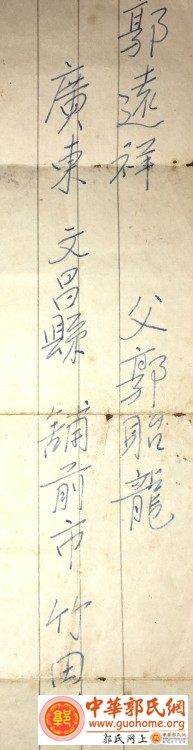 郭遠祥 父郭貽龍
廣東 文昌縣 舖前市 竹田
中華郭氏網
www.guohome.org
郭氏网上